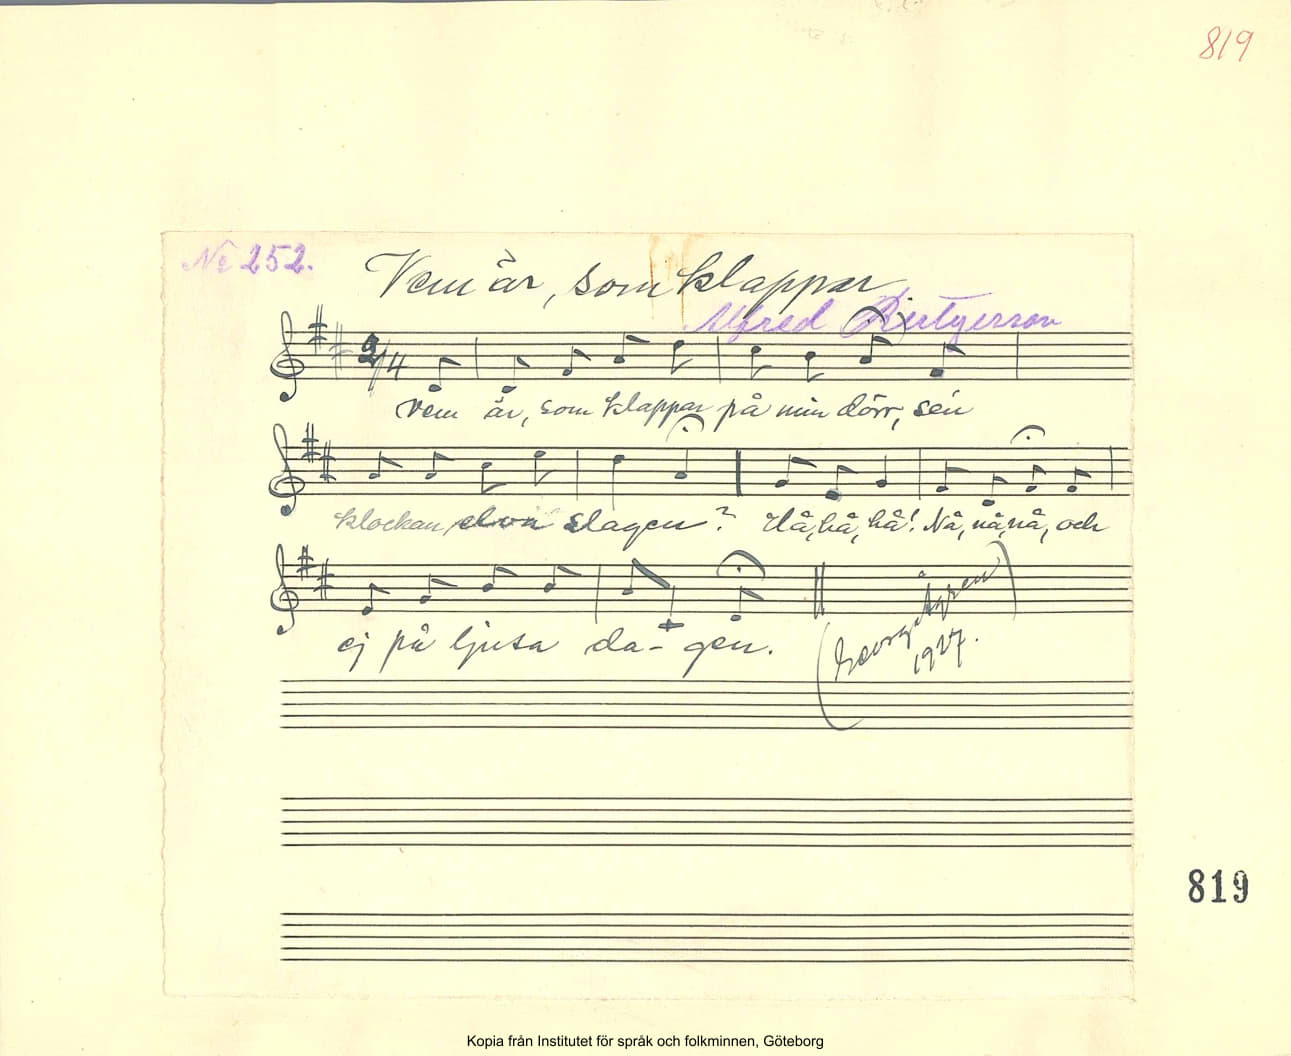 819
№ 252.
Vem är, som klappar
Alfred
2/4
Vem är, som klappar på min dörr, sen
klockan elva slagen? Hå, hå, hå! Nå, nå, nå, och
ej på ljusa da-gen.
(Georg
1927.
819
Kopia från Institutet för språk och folkminnen, Göteborg